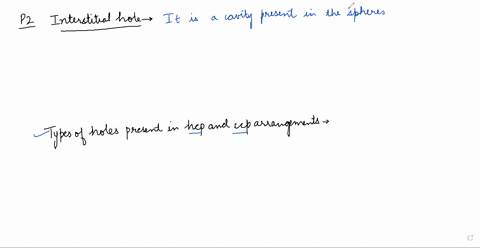 P2 Interstitial hole → It is a cavity present in the spheres
Types of holes present in hcp and ccp arrangements →